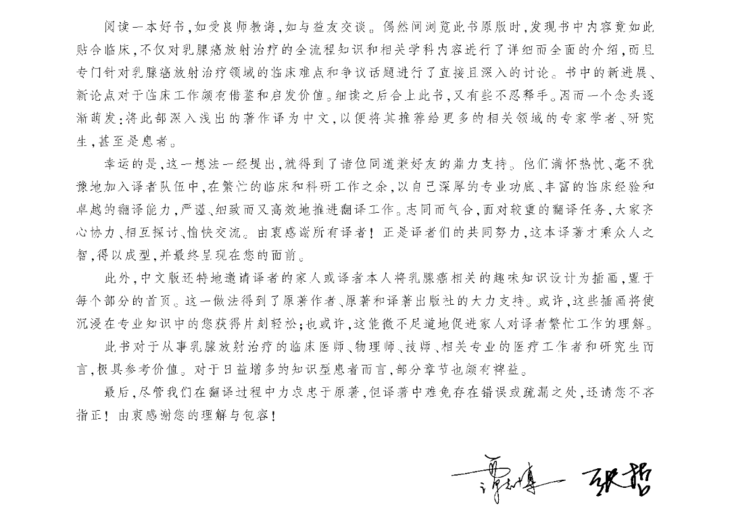 阅读一本好书,如受良师教诲,如与益友交谈。偶然间浏览此书原版时,发现书中内容竟如此
贴合临床,不仅对乳腺癌放射治疗的全流程知识和相关学科内容进行了详细而全面的介绍,而且
专门针对乳腺癌放射治疗领域的临床难点和争议话题进行了直接且深入的讨论。书中的新进展、
新论点对于临床工作颇有借鉴和启发价值。细读之后合上此书,又有些不忍释手。因而一个念头逐
渐萌发:将此部深入浅出的著作译为中文,以便将其推荐给更多的相关领域的专家学者、研究
生,甚至是患者。
幸运的是,这一想法一经提出,就得到了诸位同道兼好友的鼎力支持。他们满怀热忱、毫不犹
豫地加入译者队伍中,在繁忙的临床和科研工作之余,以自己深厚的专业功底、丰富的临床经验和
卓越的翻译能力,严谨、细致而又高效地推进翻译工作。志同而气合,面对较重的翻译任务,大家齐
心协力、相互探讨、愉快交流。由衷感谢所有译者!正是译者们的共同努力,这本译著才乘众人之
智,得以成型,并最终呈现在您的面前。
此外,中文版还特地邀请译者的家人或译者本人将乳腺癌相关的趣味知识设计为插画,置于
每个部分的首页。这一做法得到了原著作者、原著和译著出版社的大力支持。或许,这些插画将使
沉浸在专业知识中的您获得片刻轻松;也或许,这能微不足道地促进家人对译者繁忙工作的理解。
此书对于从事乳腺放射治疗的临床医师、物理师、技师、相关专业的医疗工作者和研究生而
言,极具参考价值。对于日益增多的知识型患者而言,部分章节也颇有裨益。
最后,尽管我们在翻译过程中力求忠于原著,但译著中难免存在错误或疏漏之处,还请您不吝
指正!由衷感谢您的理解与包容!